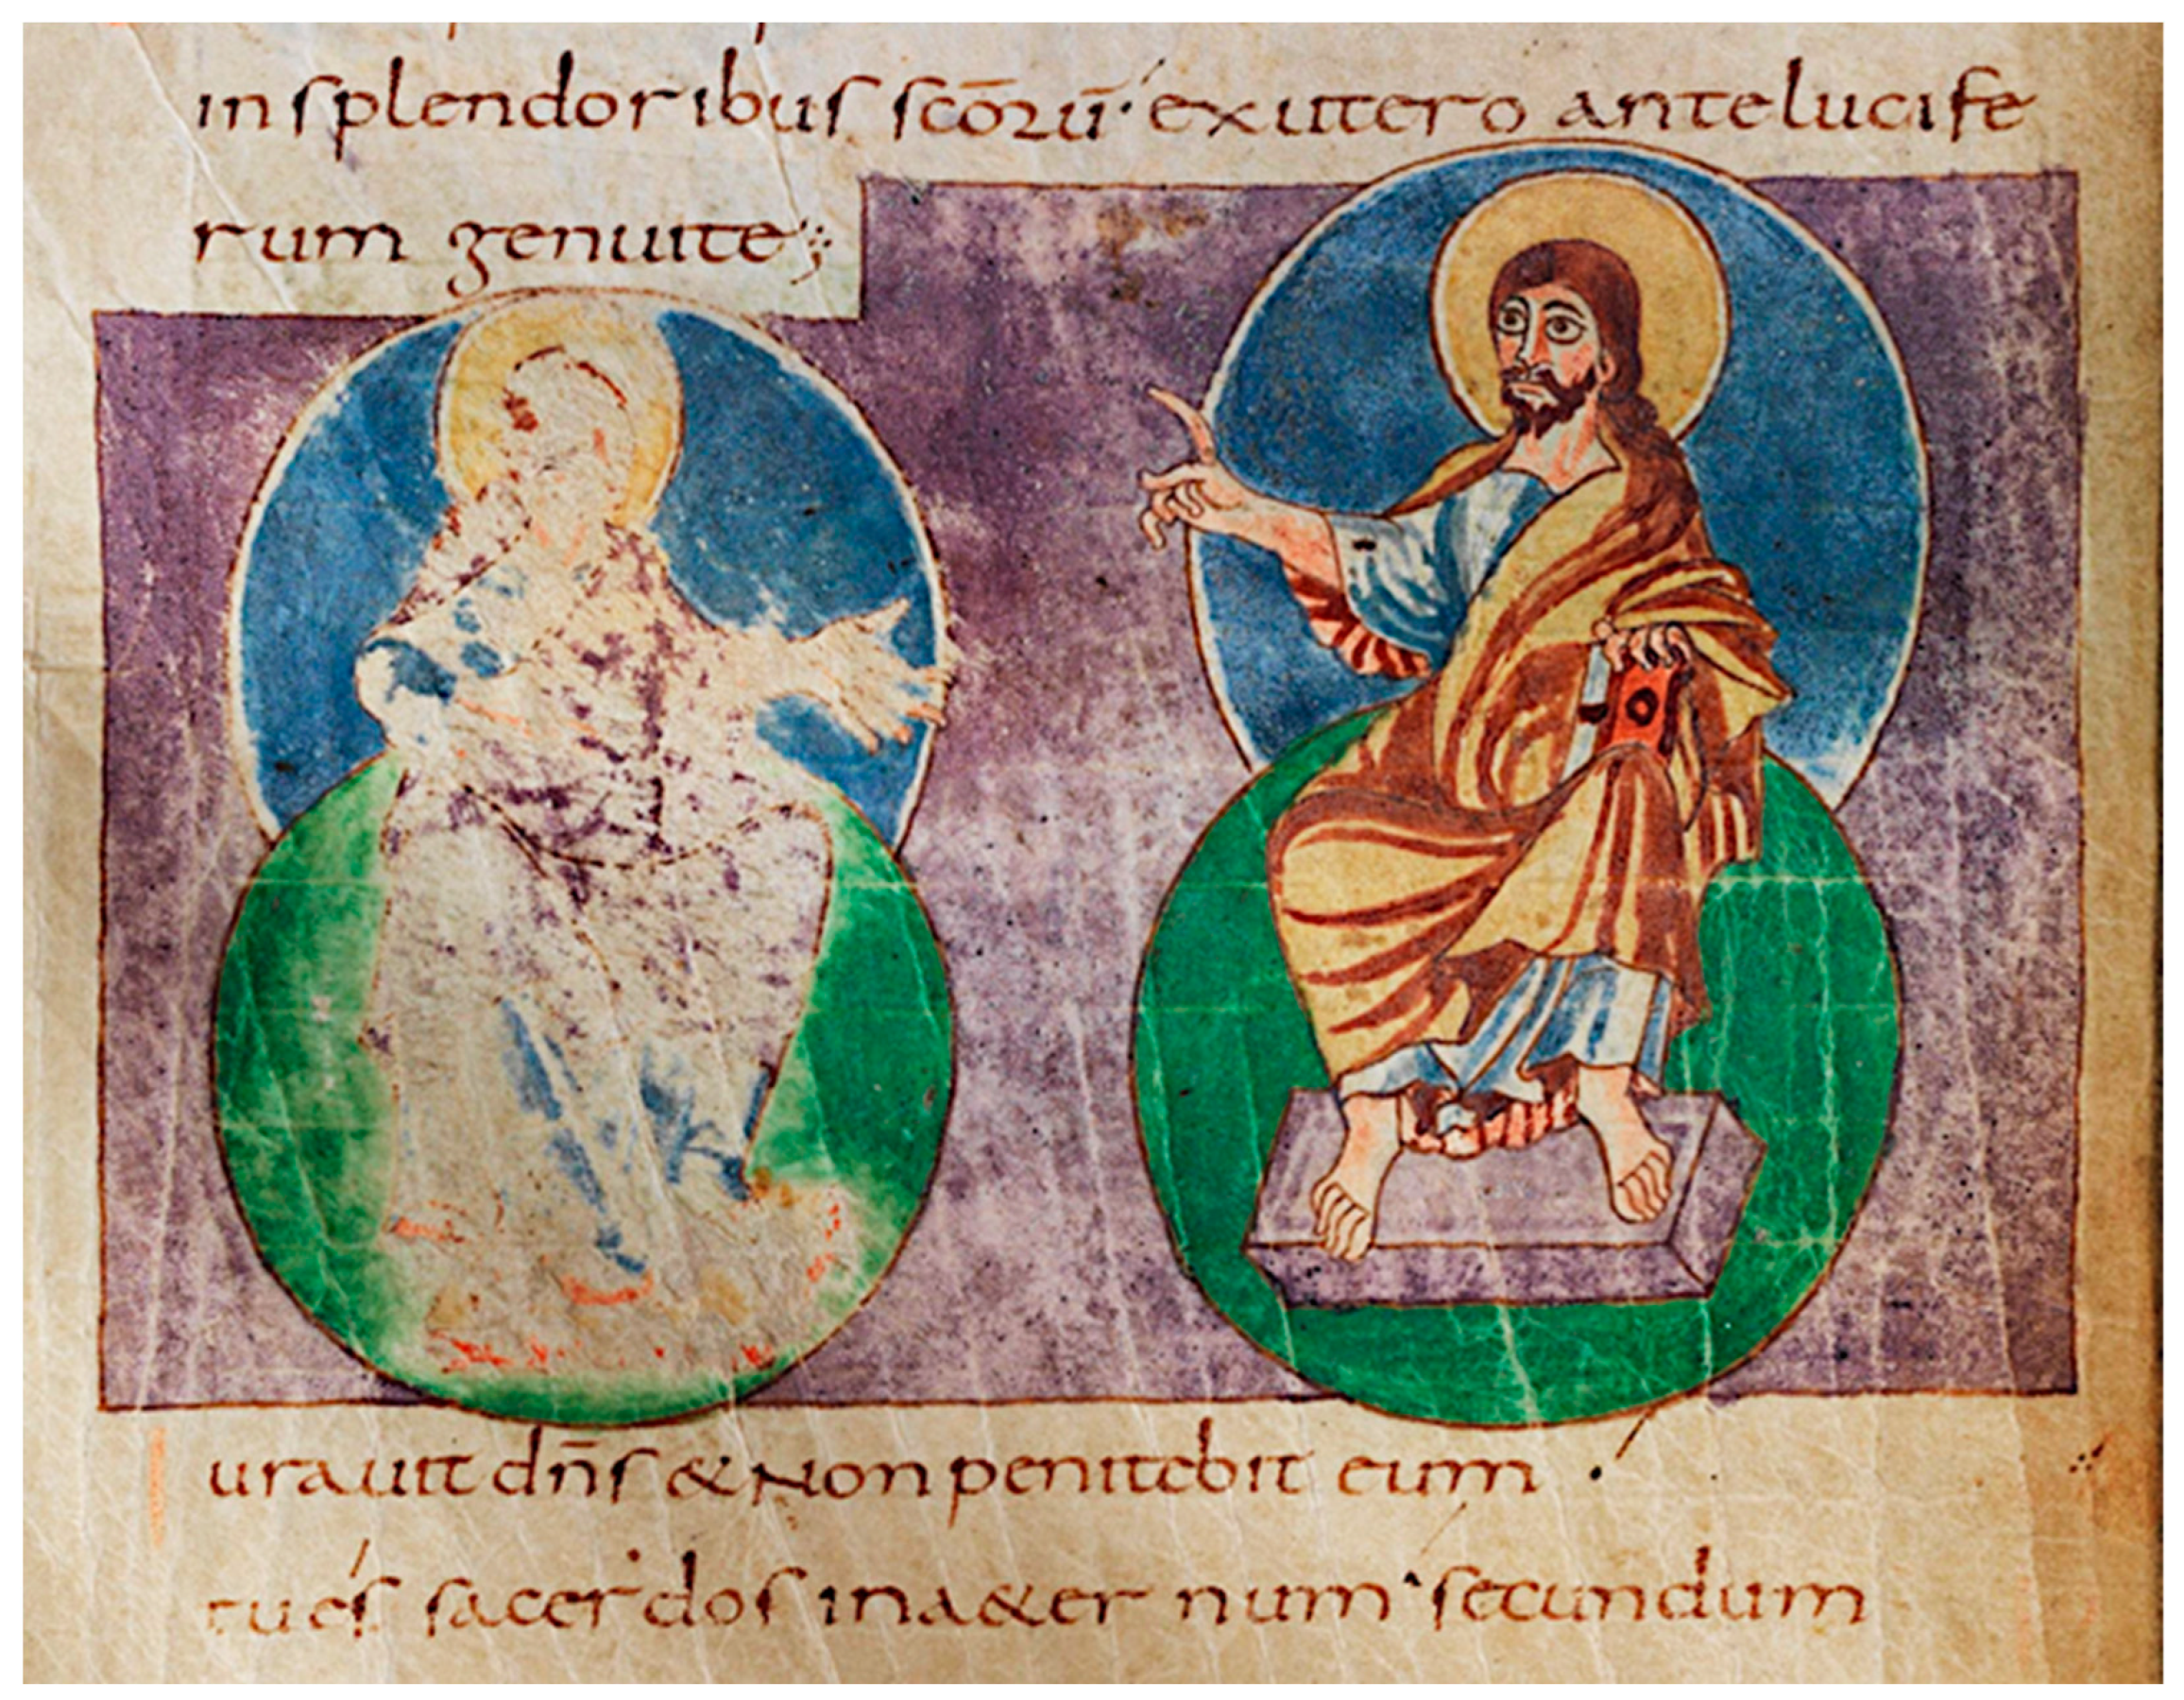 in splendoribus scōrū. ex utero ante lucife
rum genui te
urauit dn̄s & non penitebit eum .
tu es sacerdos in a&ernum secundum